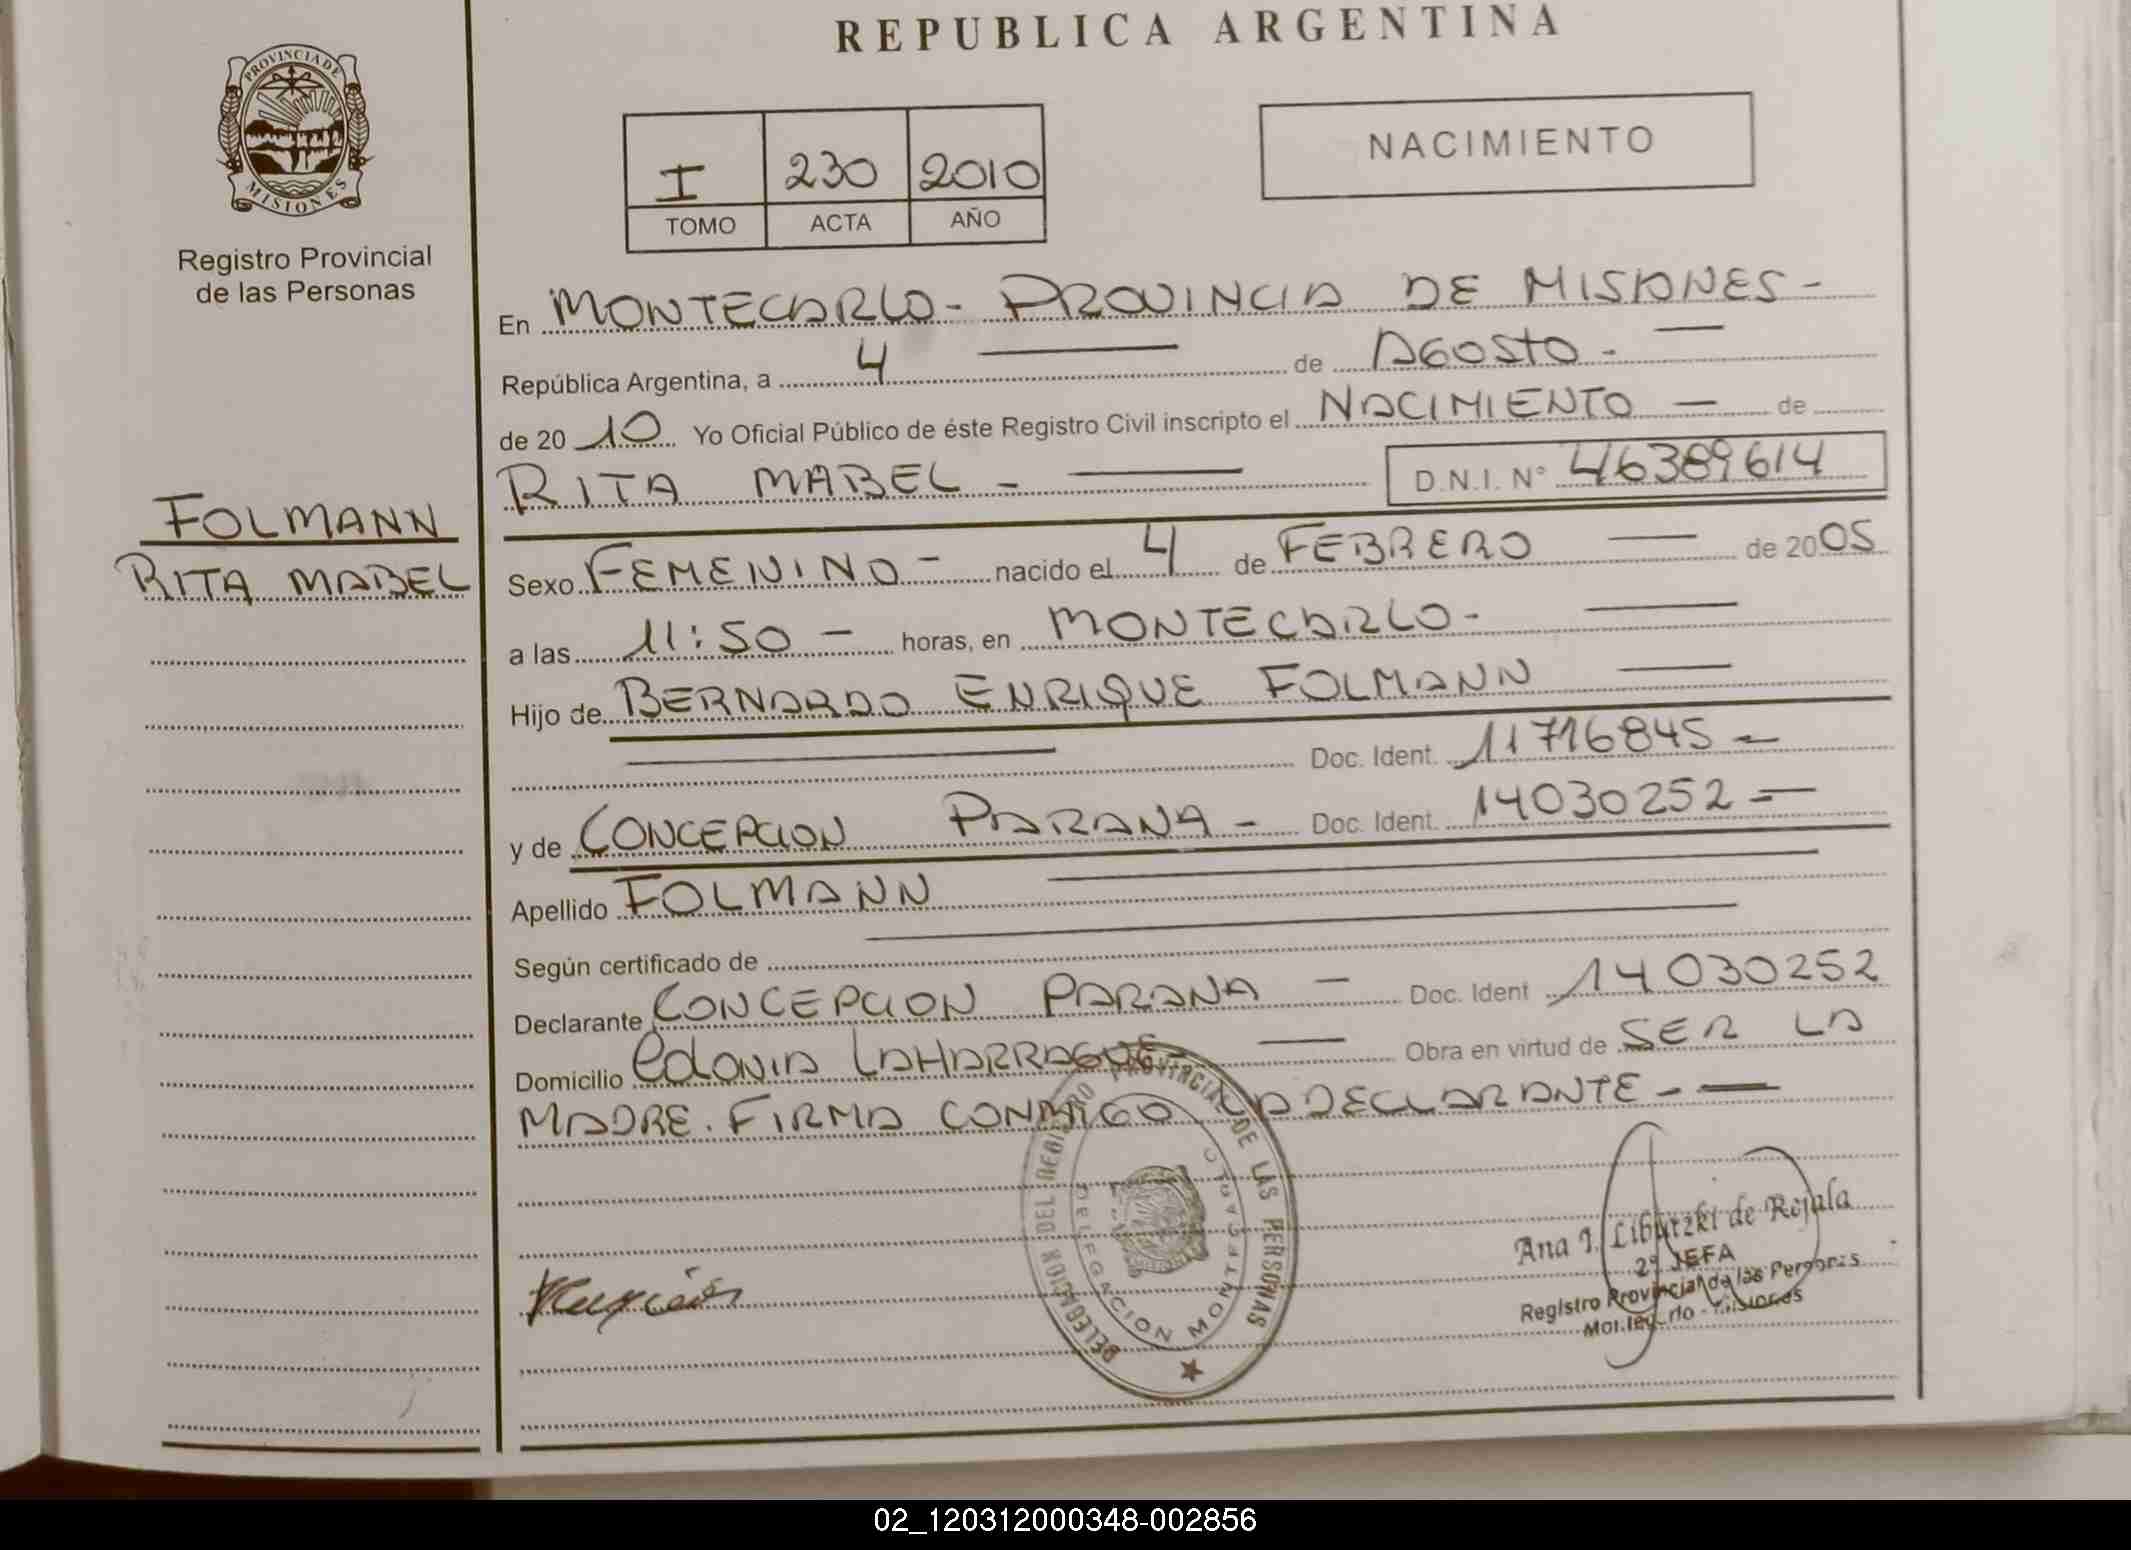 REPUBLICA ARGENTINA
PROVINCIA DE
MISIONES
Registro Provincial
de las Personas
I 230 2010
TOMO ACTA AÑO
NACIMIENTO
En MONTECARLO - PROVINCIA DE MISIONES -
República Argentina, a 4 — de AGOSTO - —
de 2010 Yo Oficial Público de éste Registro Civil inscripto el NACIMIENTO — de
RITA MABEL - — D.N.I. N° 46389614
FOLMANN
RITA MABEL
Sexo FEMENINO - nacido el 4 de FEBRERO — de 2005
a las 11:50 - horas, en MONTECARLO - —
Hijo de BERNARDO ENRIQUE FOLMANN —
— Doc. Ident. 11716845 -
y de CONCEPCION PARANA - Doc. Ident. 14030252 -
Apellido FOLMANN —
Según certificado de —
Declarante CONCEPCION PARANA - Doc. Ident 14030252
Domicilio COLONIA LAHARRAGUE - — Obra en virtud de SER LA
MADRE. FIRMA CONMIGO LA DECLARANTE - —
PROVINCIAL DE LAS PERSONAS
DELEGACION MONTECARLO
Ana I. Liburzki de Rojala
2° JEFA
Registro Provincial de las Personas
Montecarlo - Misiones
02_120312000348-002856